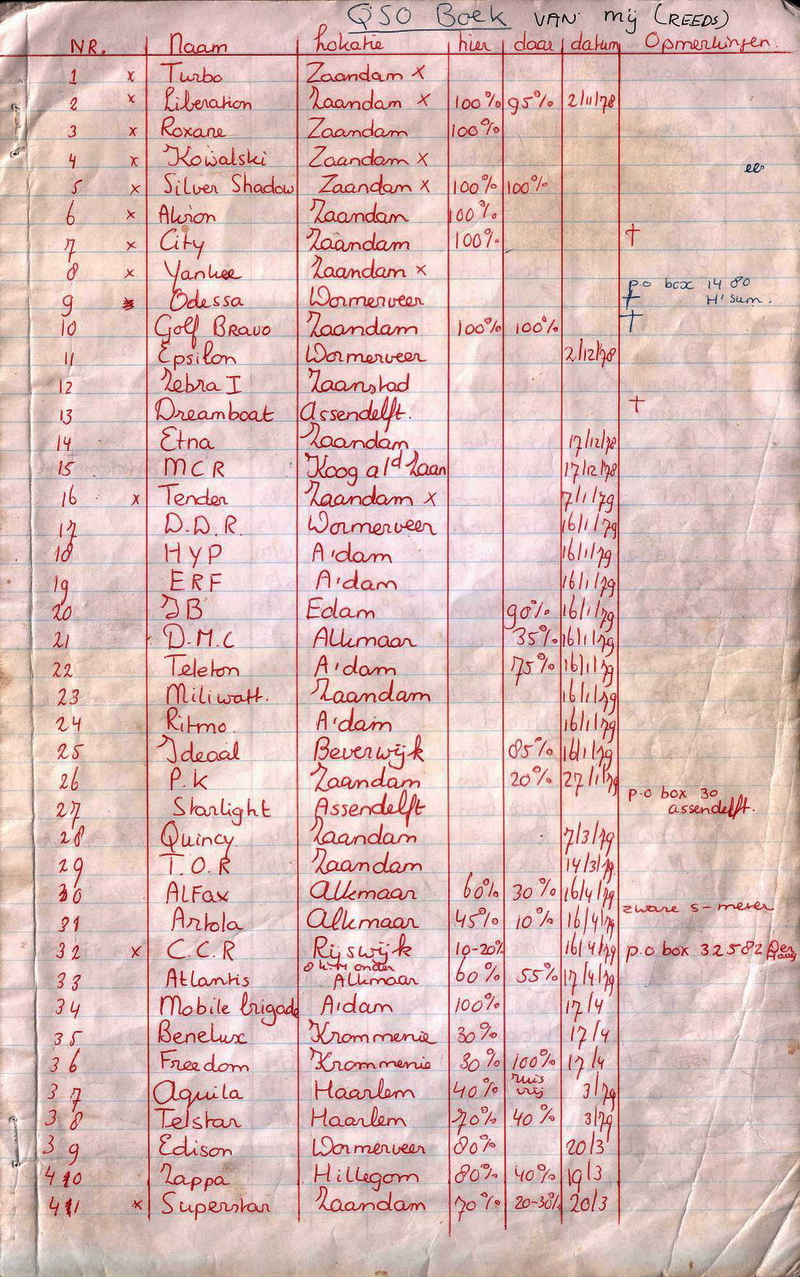 QSO Boek VAN mij (REEDS)
NR. Naam Lokatie hier daar datum Opmerkingen.
1 x Turbo Zaandam x
2 x Liberation Zaandam x 100% 95% 2/11/78
3 x Roxane Zaandam 100%
4 x Kowalski Zaandam x
5 x Silver Shadow Zaandam x 100% 100%
6 x Akron Zaandam 100%
7 x City Zaandam 100% †
8 x Yankee Zaandam x
p.o box 14 80
9 Odessa Wormerveer † H'sum.
10 Golf Bravo Zaandam 100% 100% †
11 Epsilon Wormerveer 2/12/78
12 Zebra I Zaanstad
13 Dreamboat Assendelft. †
14 Etna Zaandam 17/12/78
15 MCR Koog a/d Zaan 17/12/78
16 x Tender Zaandam x 7/1/79
17 D.D.R. Wormerveer 16/1/79
18 HYP A'dam 16/1/79
19 ERF A'dam 16/1/79
20 JB Edam 90% 16/1/79
21 D.M.C Alkmaar 35% 16/1/79
22 Teleton A'dam 75% 16/1/79
23 Miliwatt. Zaandam 16/1/79
24 Ritmo. A'dam 16/1/79
25 Ideaal Beverwijk 85% 16/1/79
26 P.K Zaandam 20% 27/1/79
p.o box 30
27 Starlight Assendelft assendelft.
28 Quincy Zaandam 7/3/79
29 T.O.R Zaandam 14/3/79
30 Alfax Alkmaar 60% 30% 16/4/79
zware s-meter
31 Artola Alkmaar 45% 10% 16/4/79
32 x C.C.R Rijswijk 10-20% 16/4/79 p.o box 32582 Den Haag
33 Atlantis 8 km onder Alkmaar 60% 55% 17/4/79
34 Mobile brigade A'dam 100% 17/4
35 Benelux Krommenie 30% 17/4
36 Freedom Krommenie 30% 100% 17/4
37 Aquila Haarlem 40% ruis vrij 3/79
38 Telstar Haarlem 70% 40% 3/79
39 Edison Wormerveer 80% 20/3
40 Zappa Hillegom 80% 40% 19/3
41 x Superstar Zaandam 70% 20-30% 20/3